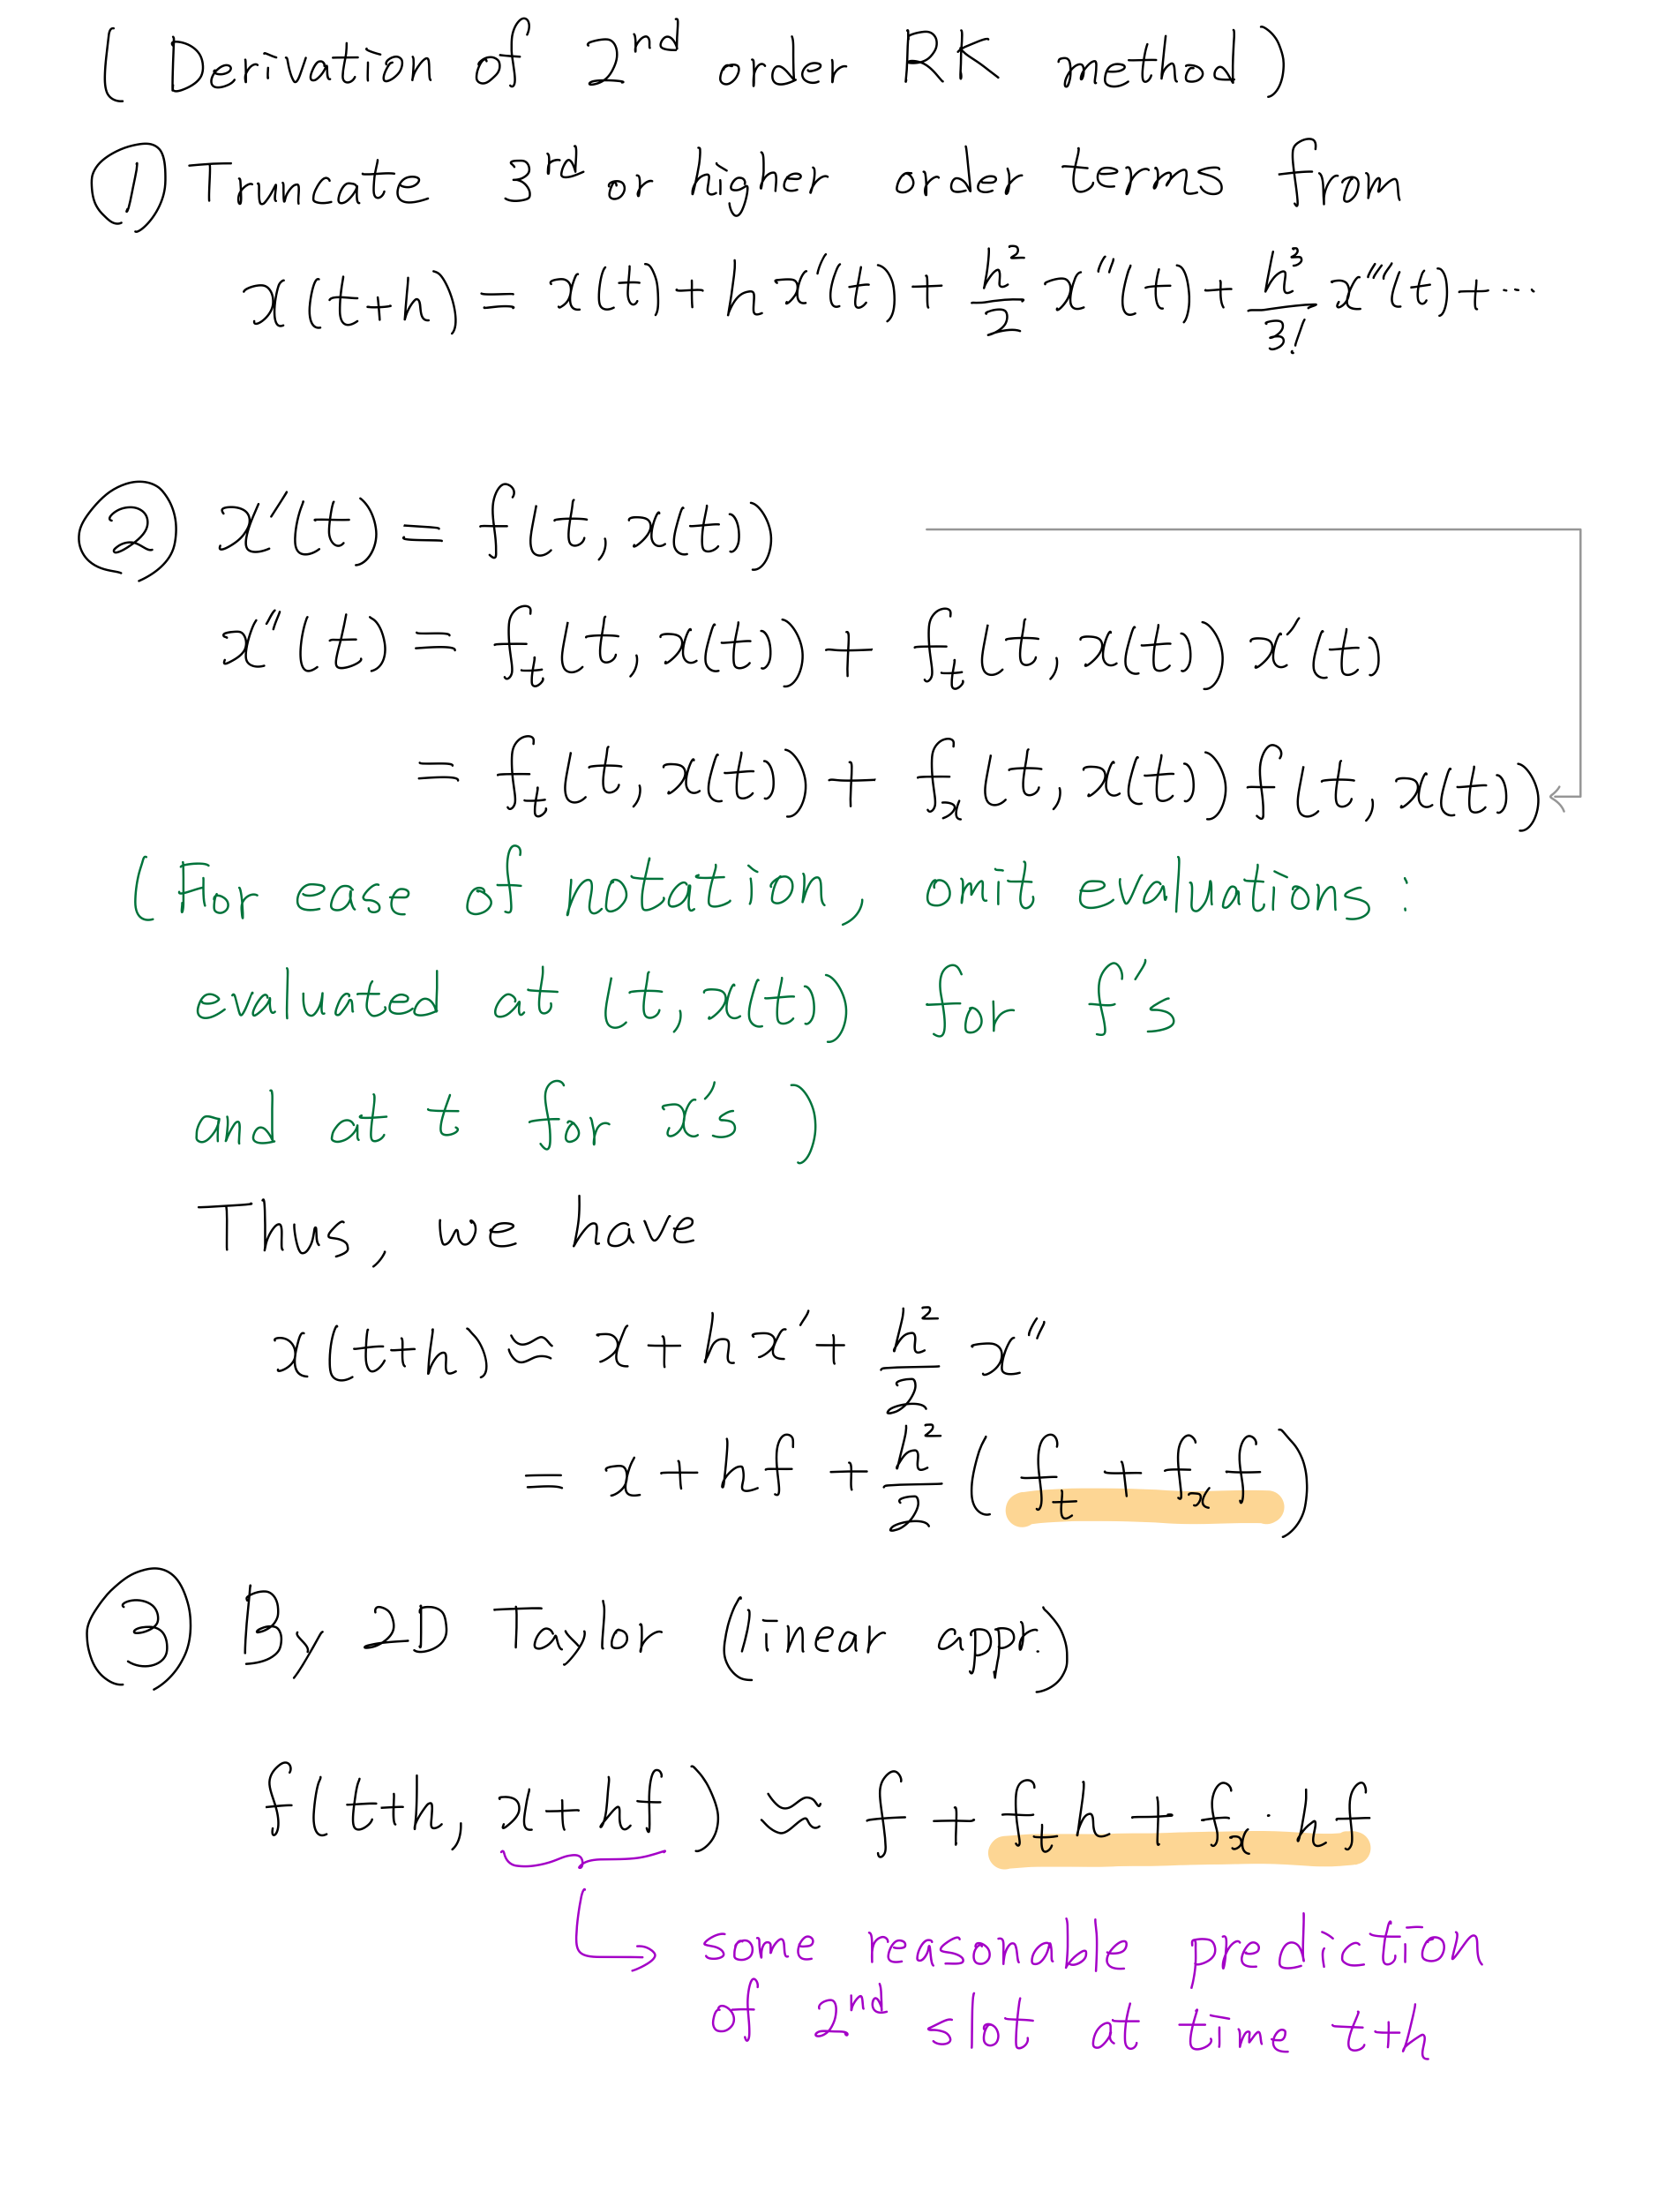 ( Derivation of 2nd order RK method)
① Truncate 3rd or higher order terms from
x(t+h) = x(t) + hx'(t) + h²/2 x''(t) + h³/3! x'''(t) + ⋯
② x'(t) = f(t, x(t))
x''(t) = f_t(t, x(t)) + f_t(t, x(t)) x'(t)
= f_t(t, x(t)) + f_x(t, x(t)) f(t, x(t))
(For ease of notation, omit evaluations:
evaluated at (t, x(t)) for f's
and at t for x's )
Thus, we have
x(t+h) ≈ x + hx' + h²/2 x''
= x + hf + h²/2 (f_t + f_x f)
③ By 2D Taylor (linear appr.)
f(t+h, x+hf) ≈ f + f_t h + f_x · hf
some reasonable prediction
of 2nd slot at time t+h